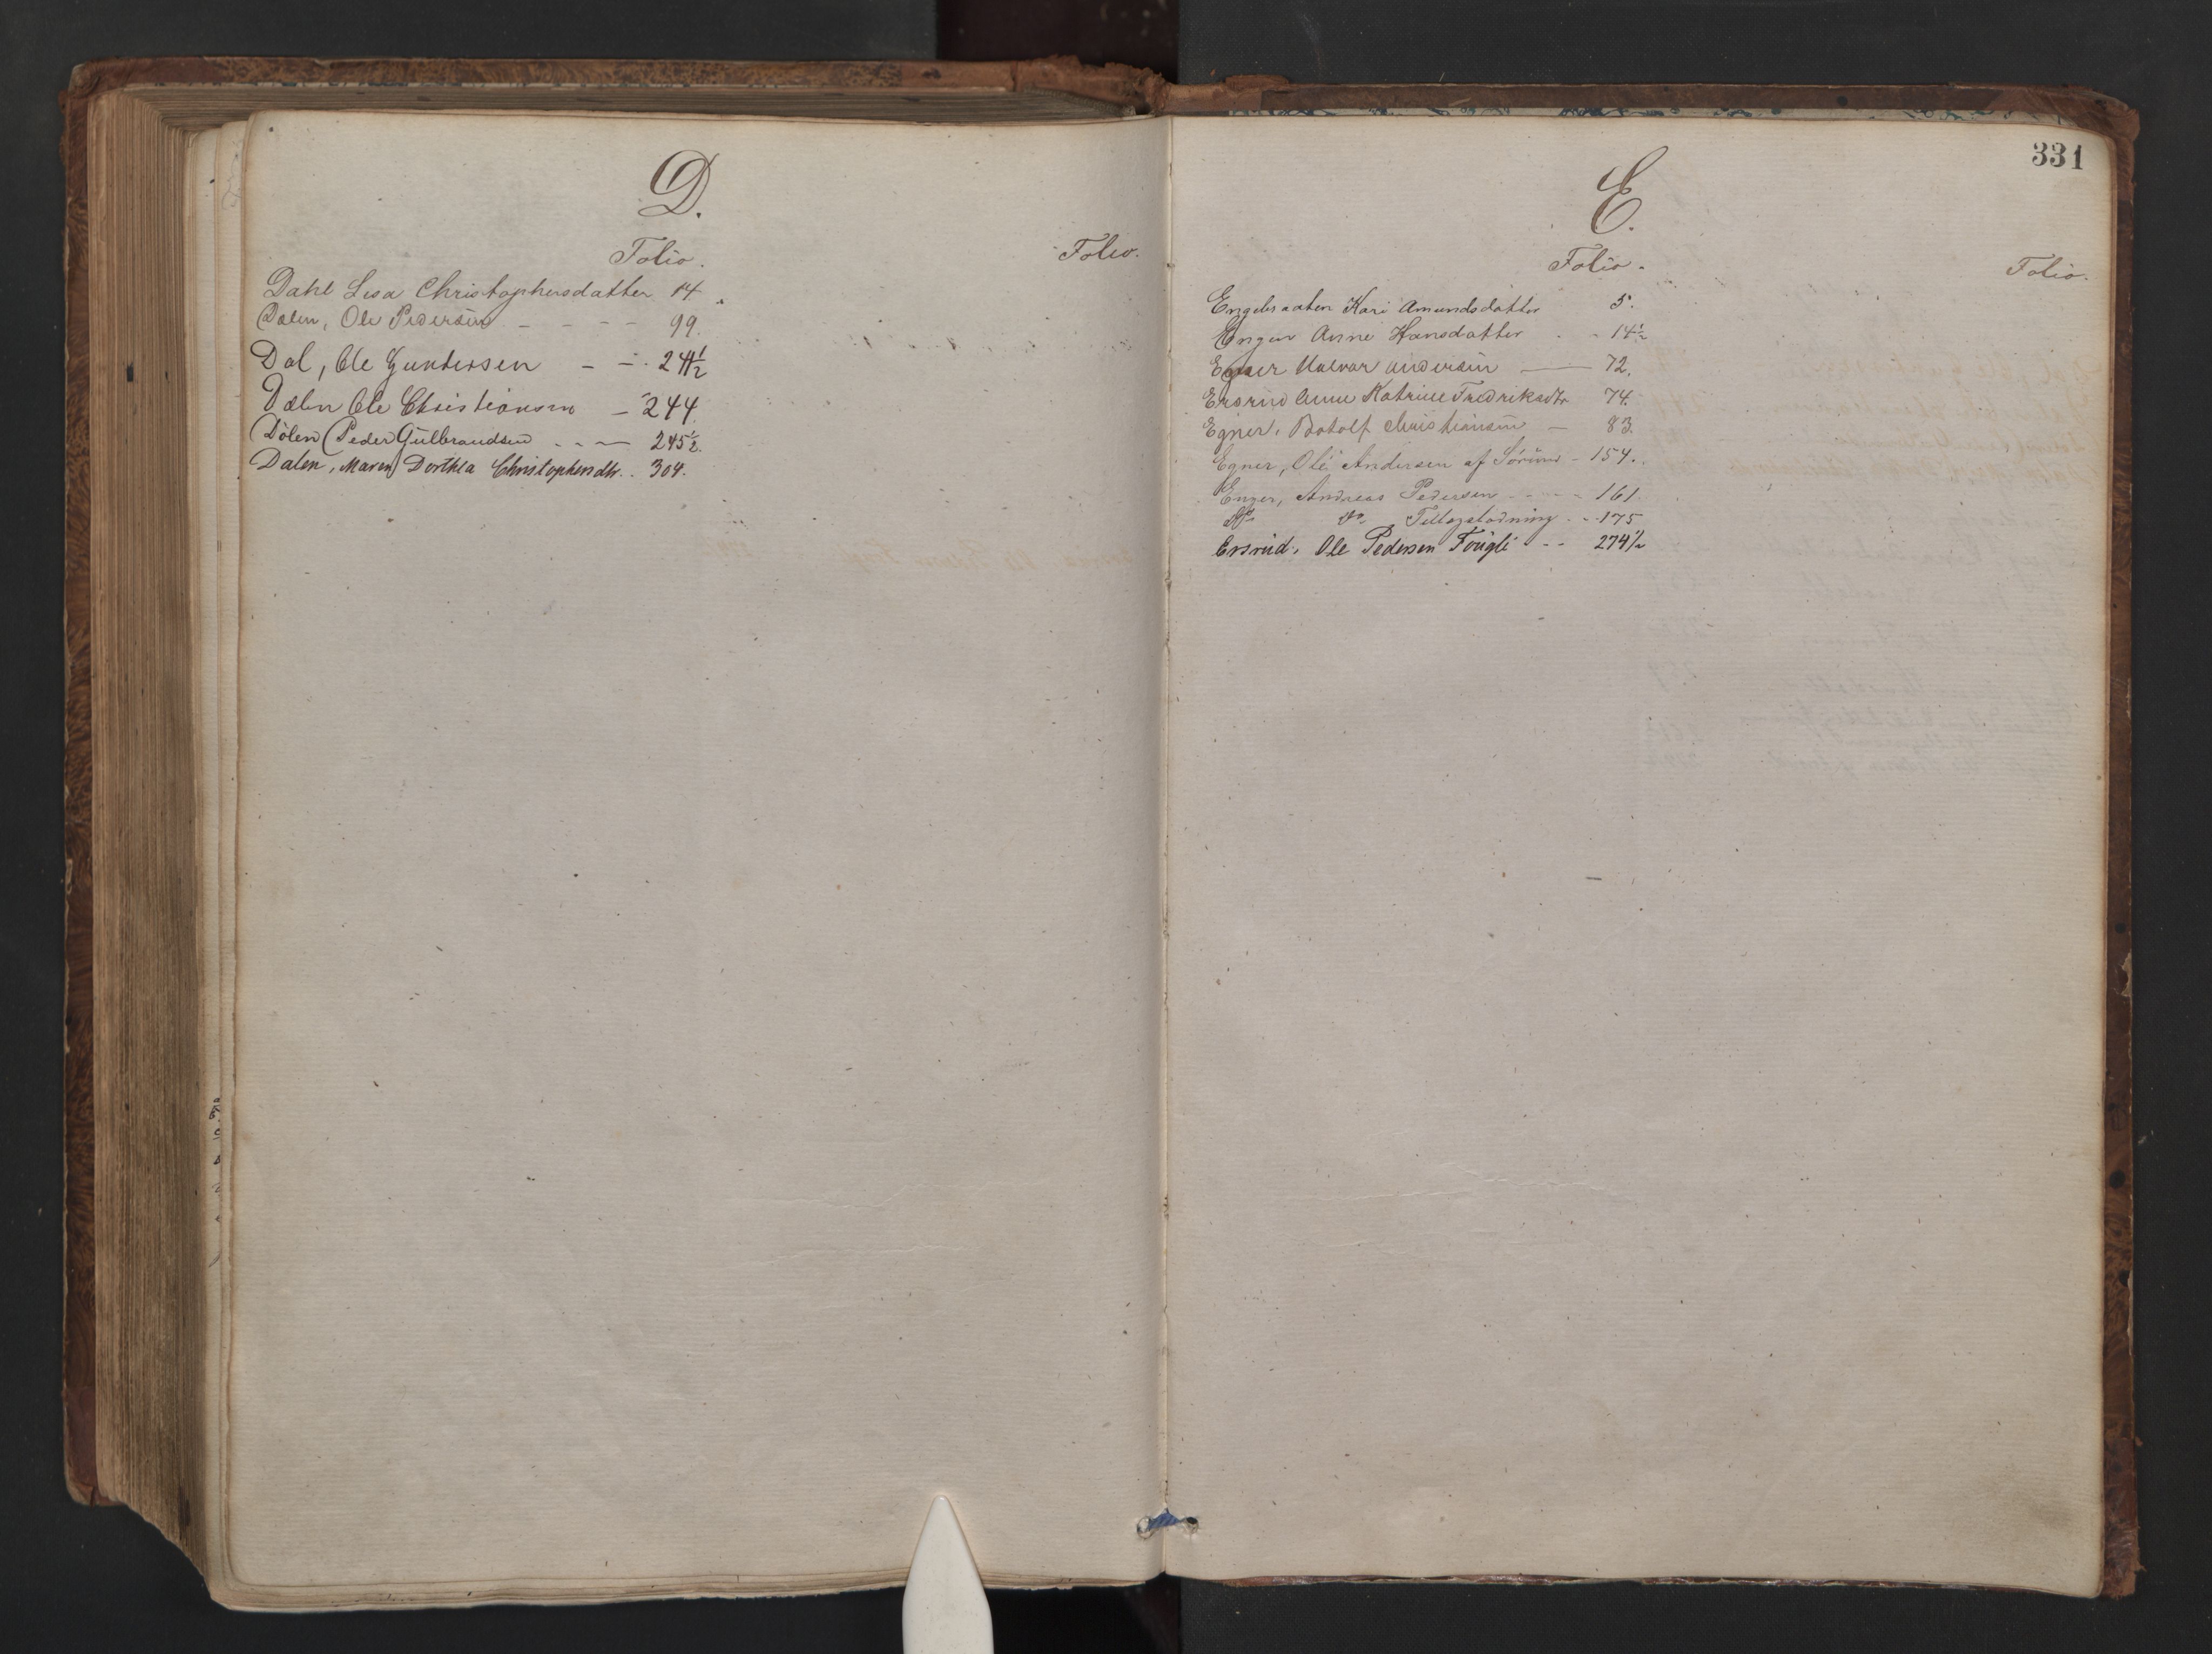 D.
Folio. Folio.
Dahl Lisa Christophersdatter 14.
Dalen, Ole Pedersen - - - - 99.
Dal, Ole Gundersen - - 241½
Dalen Ole Christiansen - 244.
Dølen Peder Gulbrandsen - - - 245½.
Dalen, Maren Dorthea Christophersdtr. . 304.
331
E.
Folio. Folio.
Engebraaten Kari Amundsdatter 5.
Enger Anne Hansdatter - - 14½
Egner Halvor Andersen - 72.
Ersrud Anne Katrine Fredriksdtr 74.
Egner, Botolf Christiansen - 83.
Egner, Ole Andersen af - 154.
Enger, Andreas Pedersen - - - - 161.
Do Do - - 175
Ersrud, Ole Pedersen Fougli - - 274½